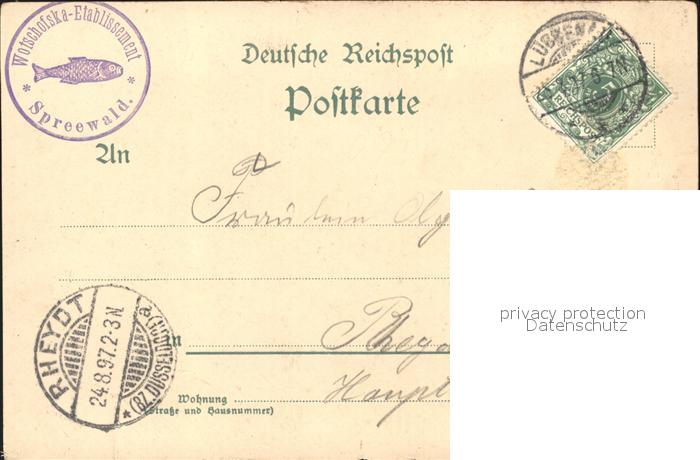 Wotschofska-Etablissement
* Spreewald. *
Deutsche Reichspost
Postkarte
LÜBBENAU
An
Fräulein Olg
privacy protection
Datenschutz
RHEYDT
24.8.97.2-3N
* (BZ.DÜSSELDORF) a
in Rhey
Wohnung Haupt
(Straße und Hausnummer)